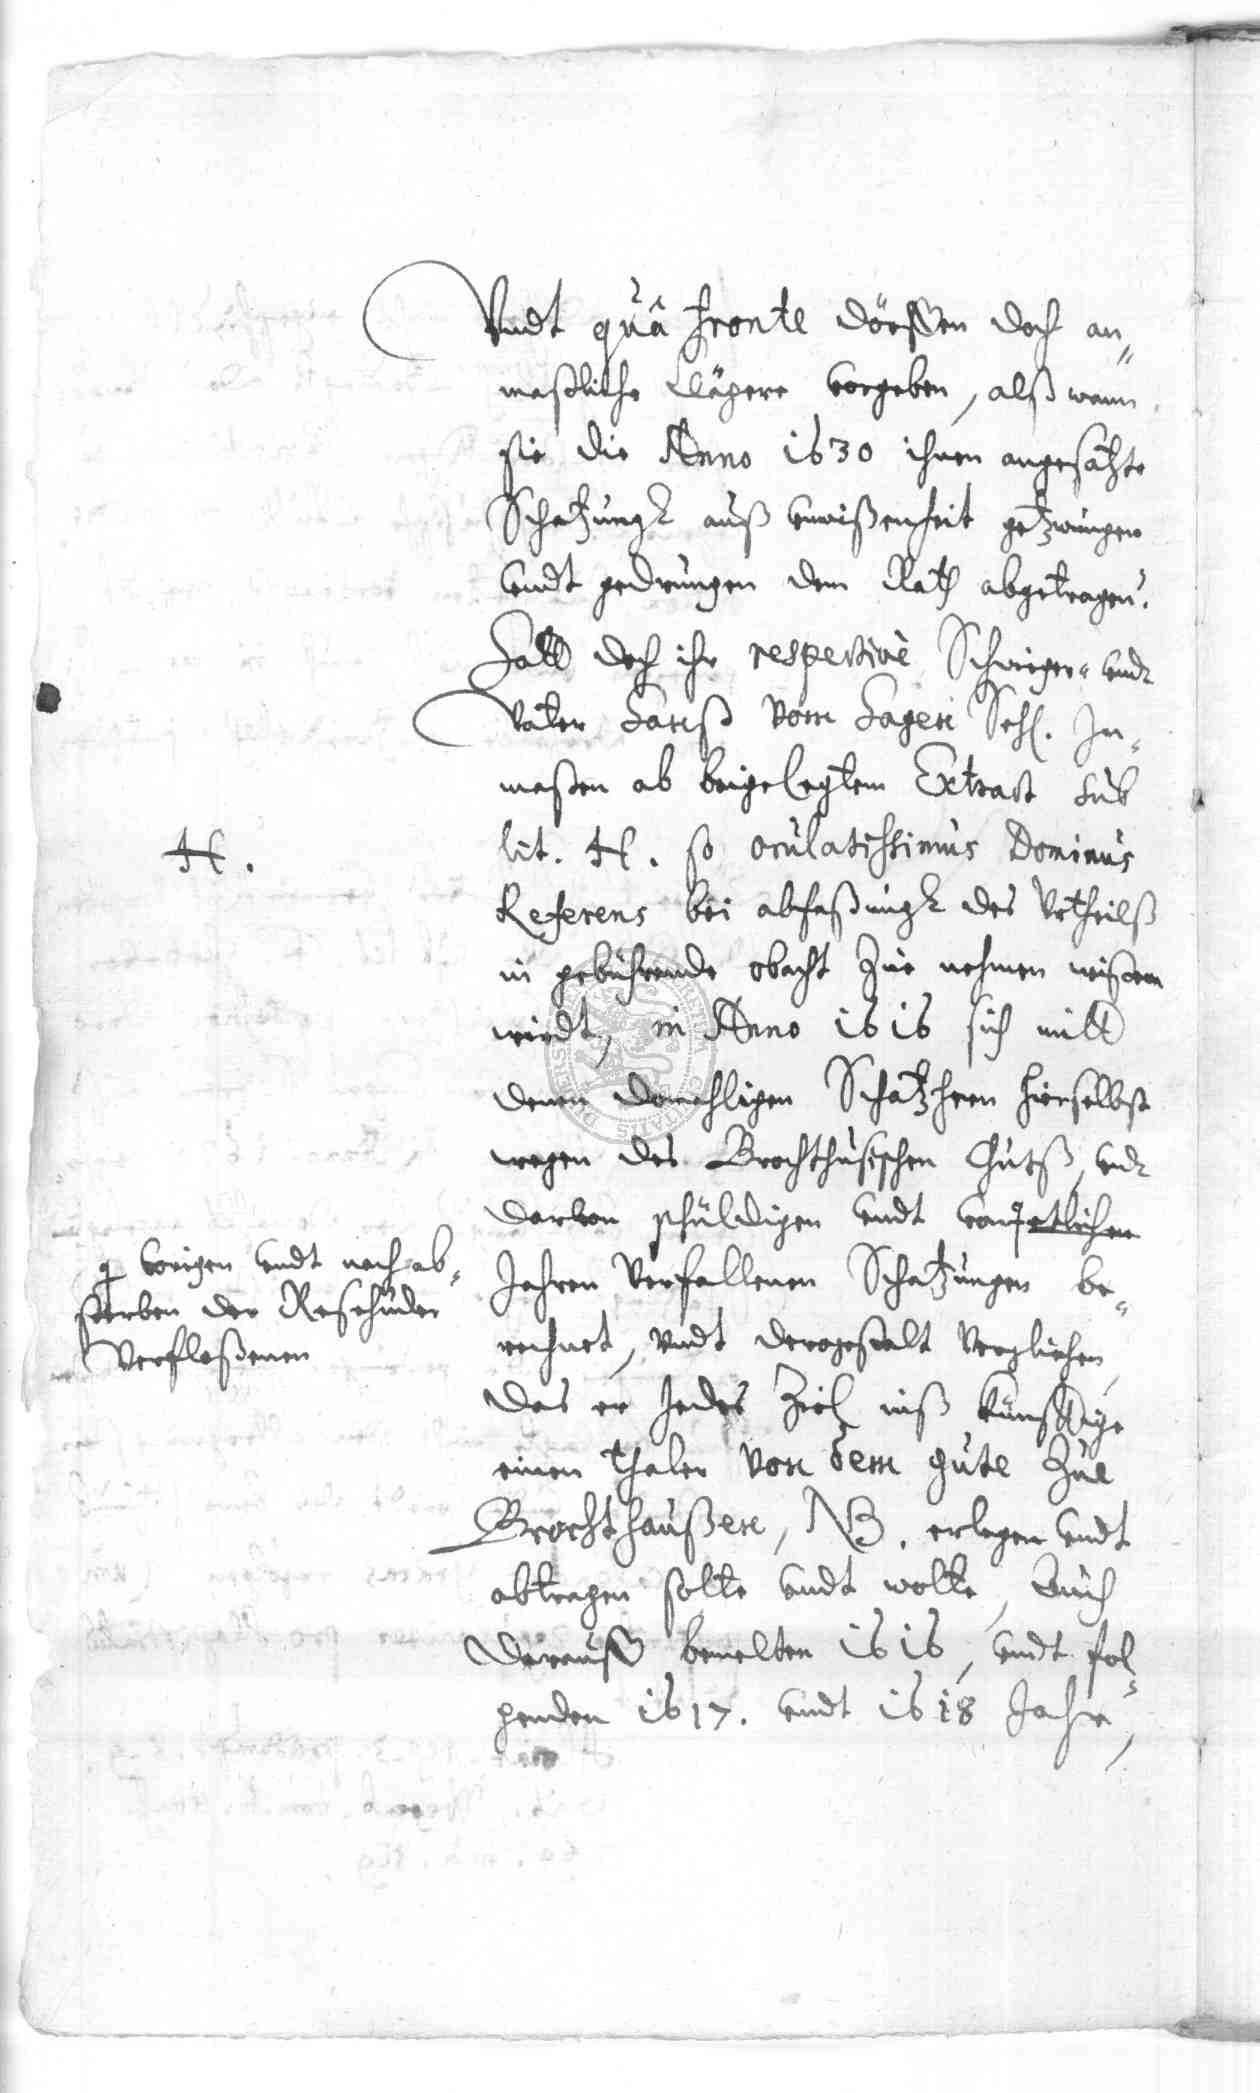 Vndt quâ fronte dörffen doch an„
maßliche Clägere vorgeben, alß wann
sie die Anno 1630 ihnen angesätzte
Schatzungk auß vnwißenheit getzwungen
vndt gedrungen dem Rath abgetragen?
Hatt doch ihr respectivè Schwieger- vndt
Vatter Hanß vom Hagen Sehl. In„
maßen ab beigelegtem Extract sub
H.
lit. H. so oculatissimus Dominus
Referens bei abfaßungk des Vrtheilß
in gebührende obacht Zue nehmen wißen
wirdt, in Anno 1616 sich mitt
denen domahligen Schatzhern hierselbst
wegen des Brochthusischen Guts, vndt
darvon schüldigen vndt von etlichen
vorigen vndt nach ab„
sterben der Resehuder
Verfloßenen
Jahren Verfallenen Schatzungen be„
rechnet, vndt dergestalt Verglichen,
das er Jedes Ziel inß künfftige
einen thaler von dem gute Zue
Brochthaußen, NB. erlegen vndt
abtragen solte vndt wolte, Auch
darauff bemelten 1616, vndt fol„
genden 1617. vndt 1618 Jahre,